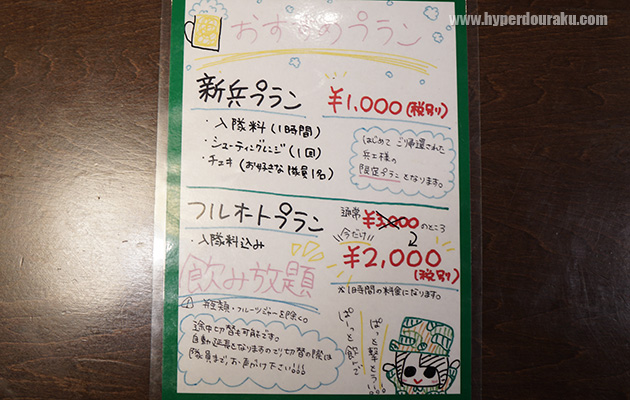 www.hyperdouraku.com
おすすめプラン
新兵プラン ¥1,000(税別)
・入隊料(1時間)
・シューティングレンジ(1回)
・チェキ(お好きな隊員1名)
はじめてご帰還された
兵士様の
限定プランとなります。
フルオートプラン
・入隊料込み
通常¥3,000のところ
2
今だけ
¥2,000
(税別)
が1時間の料金になります。
飲み放題
瓶類・フルーツジャーを除く。
途中切替も可能です。
自動延長となりますので切替の際は
隊員まで、お声がけ下さい!!!
ぱーっと撃とう!!!
ぱーっと飲んで